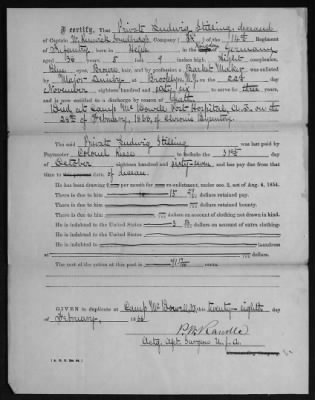 I certify, That Private Ludwig Stilling deceased
of Captain W. Company ( ) 14th Regiment
of Infantry, born in Germany
aged 36 years, 5 feet 9 inches high, Light complexion,
Blue eyes, Brown hair, and by profession a Basket Maker was enlisted
by Major at Brooklyn N.Y. on the 22d
November eighteen hundred and sixty six to serve three years,
and is now entitled to a discharge by reason of Death
Died at Camp McDowell Post Hospital, A.T. on the
28th of February, 1868, of Chronic Dysentery
The said Private Ludwig Stilling was last paid by
Paymaster Colonel to include the 31st
of October eighteen hundred and sixty-seven, and has pay due from that
time to date of decease.
He has been drawing per month for re-enlistment, under sec. 2, act of Aug. 4, 1854.
There is due to him dollars retained pay.
There is due to him dollars retained bounty.
There is due to him dollars on account of clothing not drawn in kind.
He is indebted to the United States dollars on account of extra clothing.
He is indebted to the United States
He is indebted to laundress
at dollars.
The cost of the ration at this post is cents.
GIVEN in duplicate at Camp McDowell, A.T. this twenty-eighth day
of February, 1868
Actg. Asst. Surgeon U.S.A.